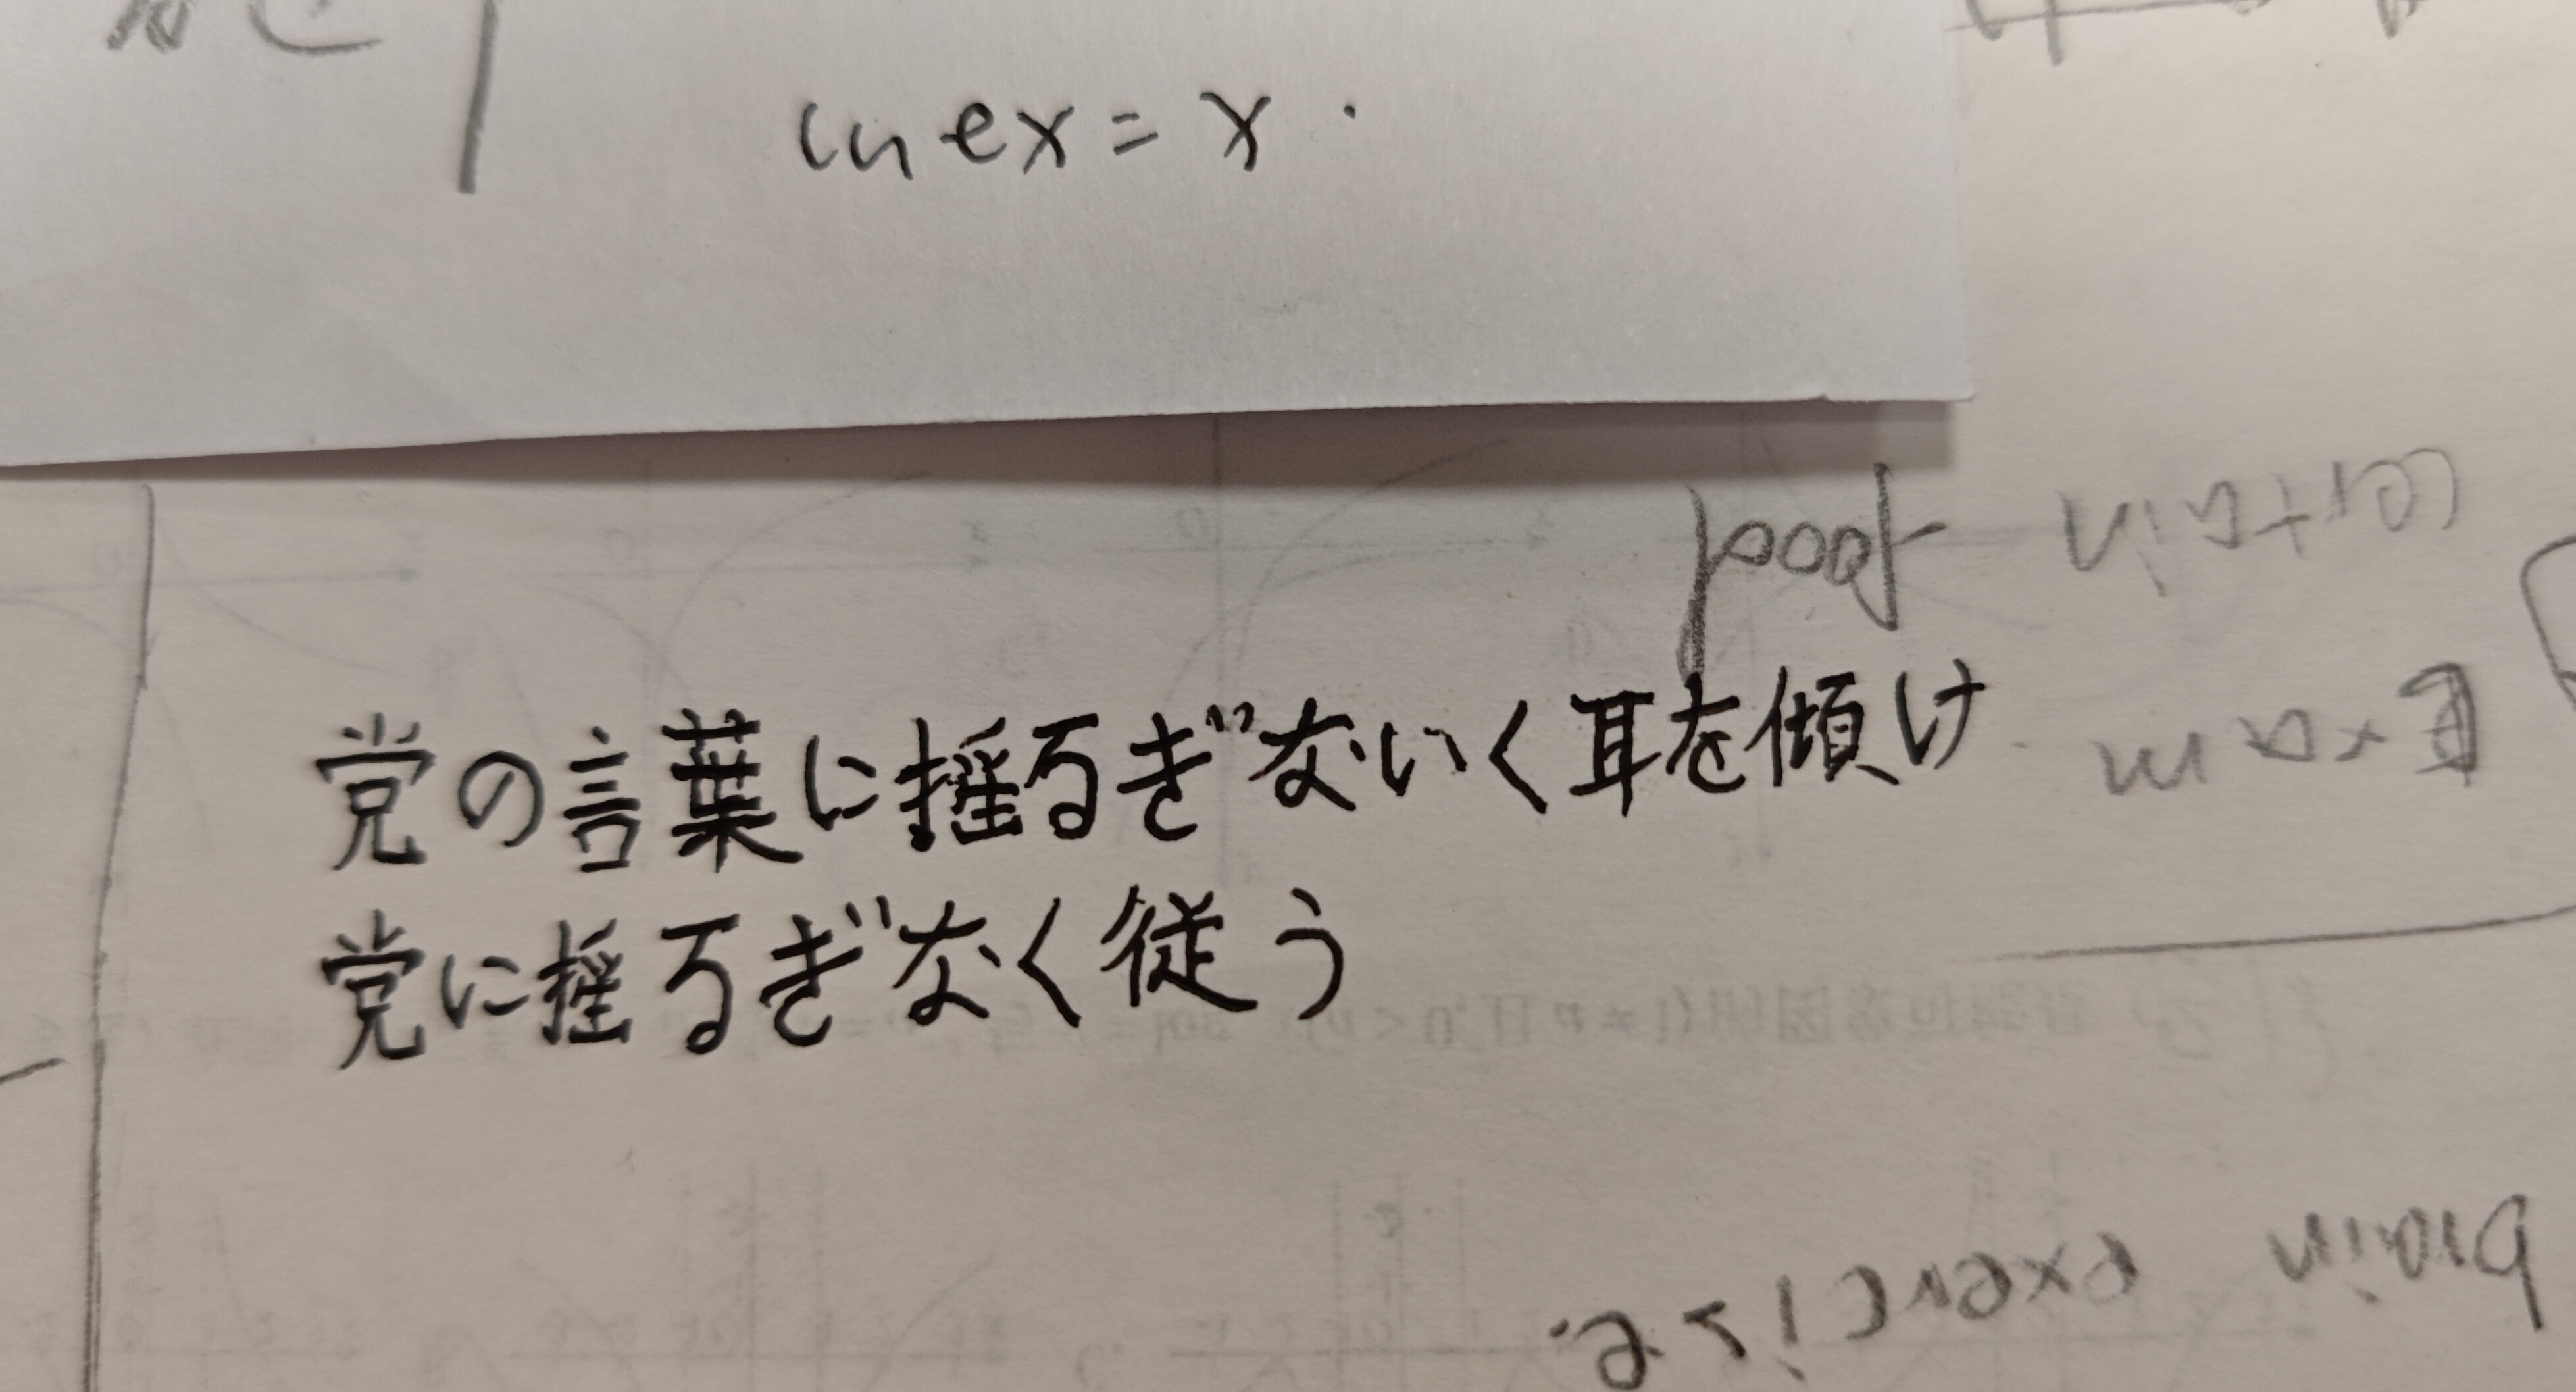 ln ex = x .
poof
certain
党の言葉に揺るぎないく耳を傾け
Exam
党に揺るぎなく従う
brain exercise.